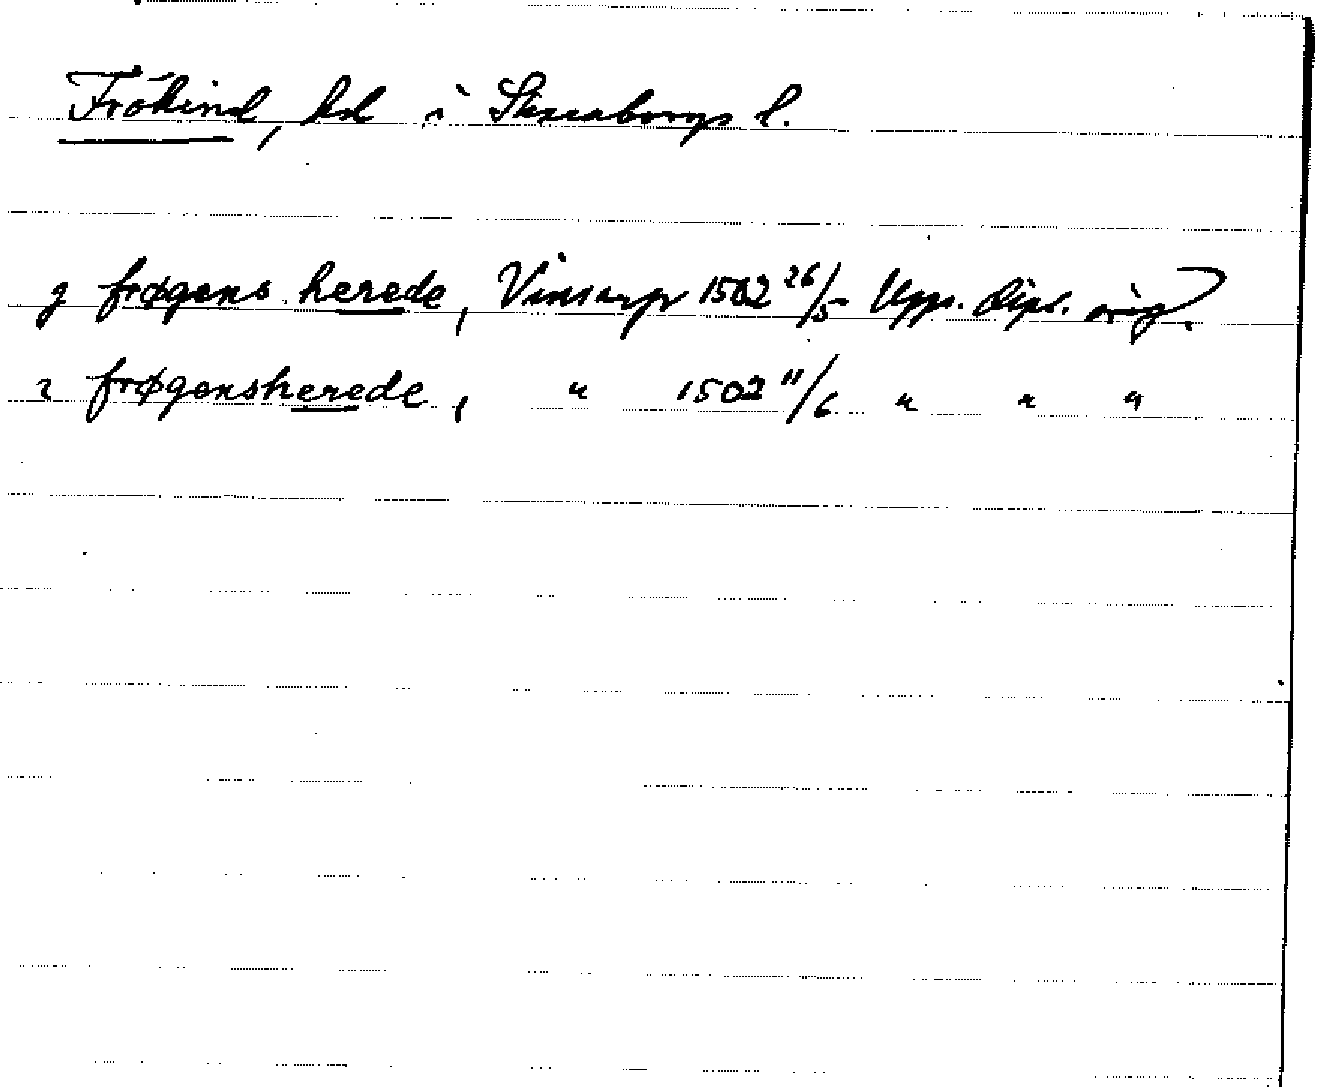 Frökind, hd i Skaraborgs l.
j frøgens herede, Vinsarp 1502 26/5 Upps. dipl. orig.
i frøgensherede, " 1502 11/6 " " "